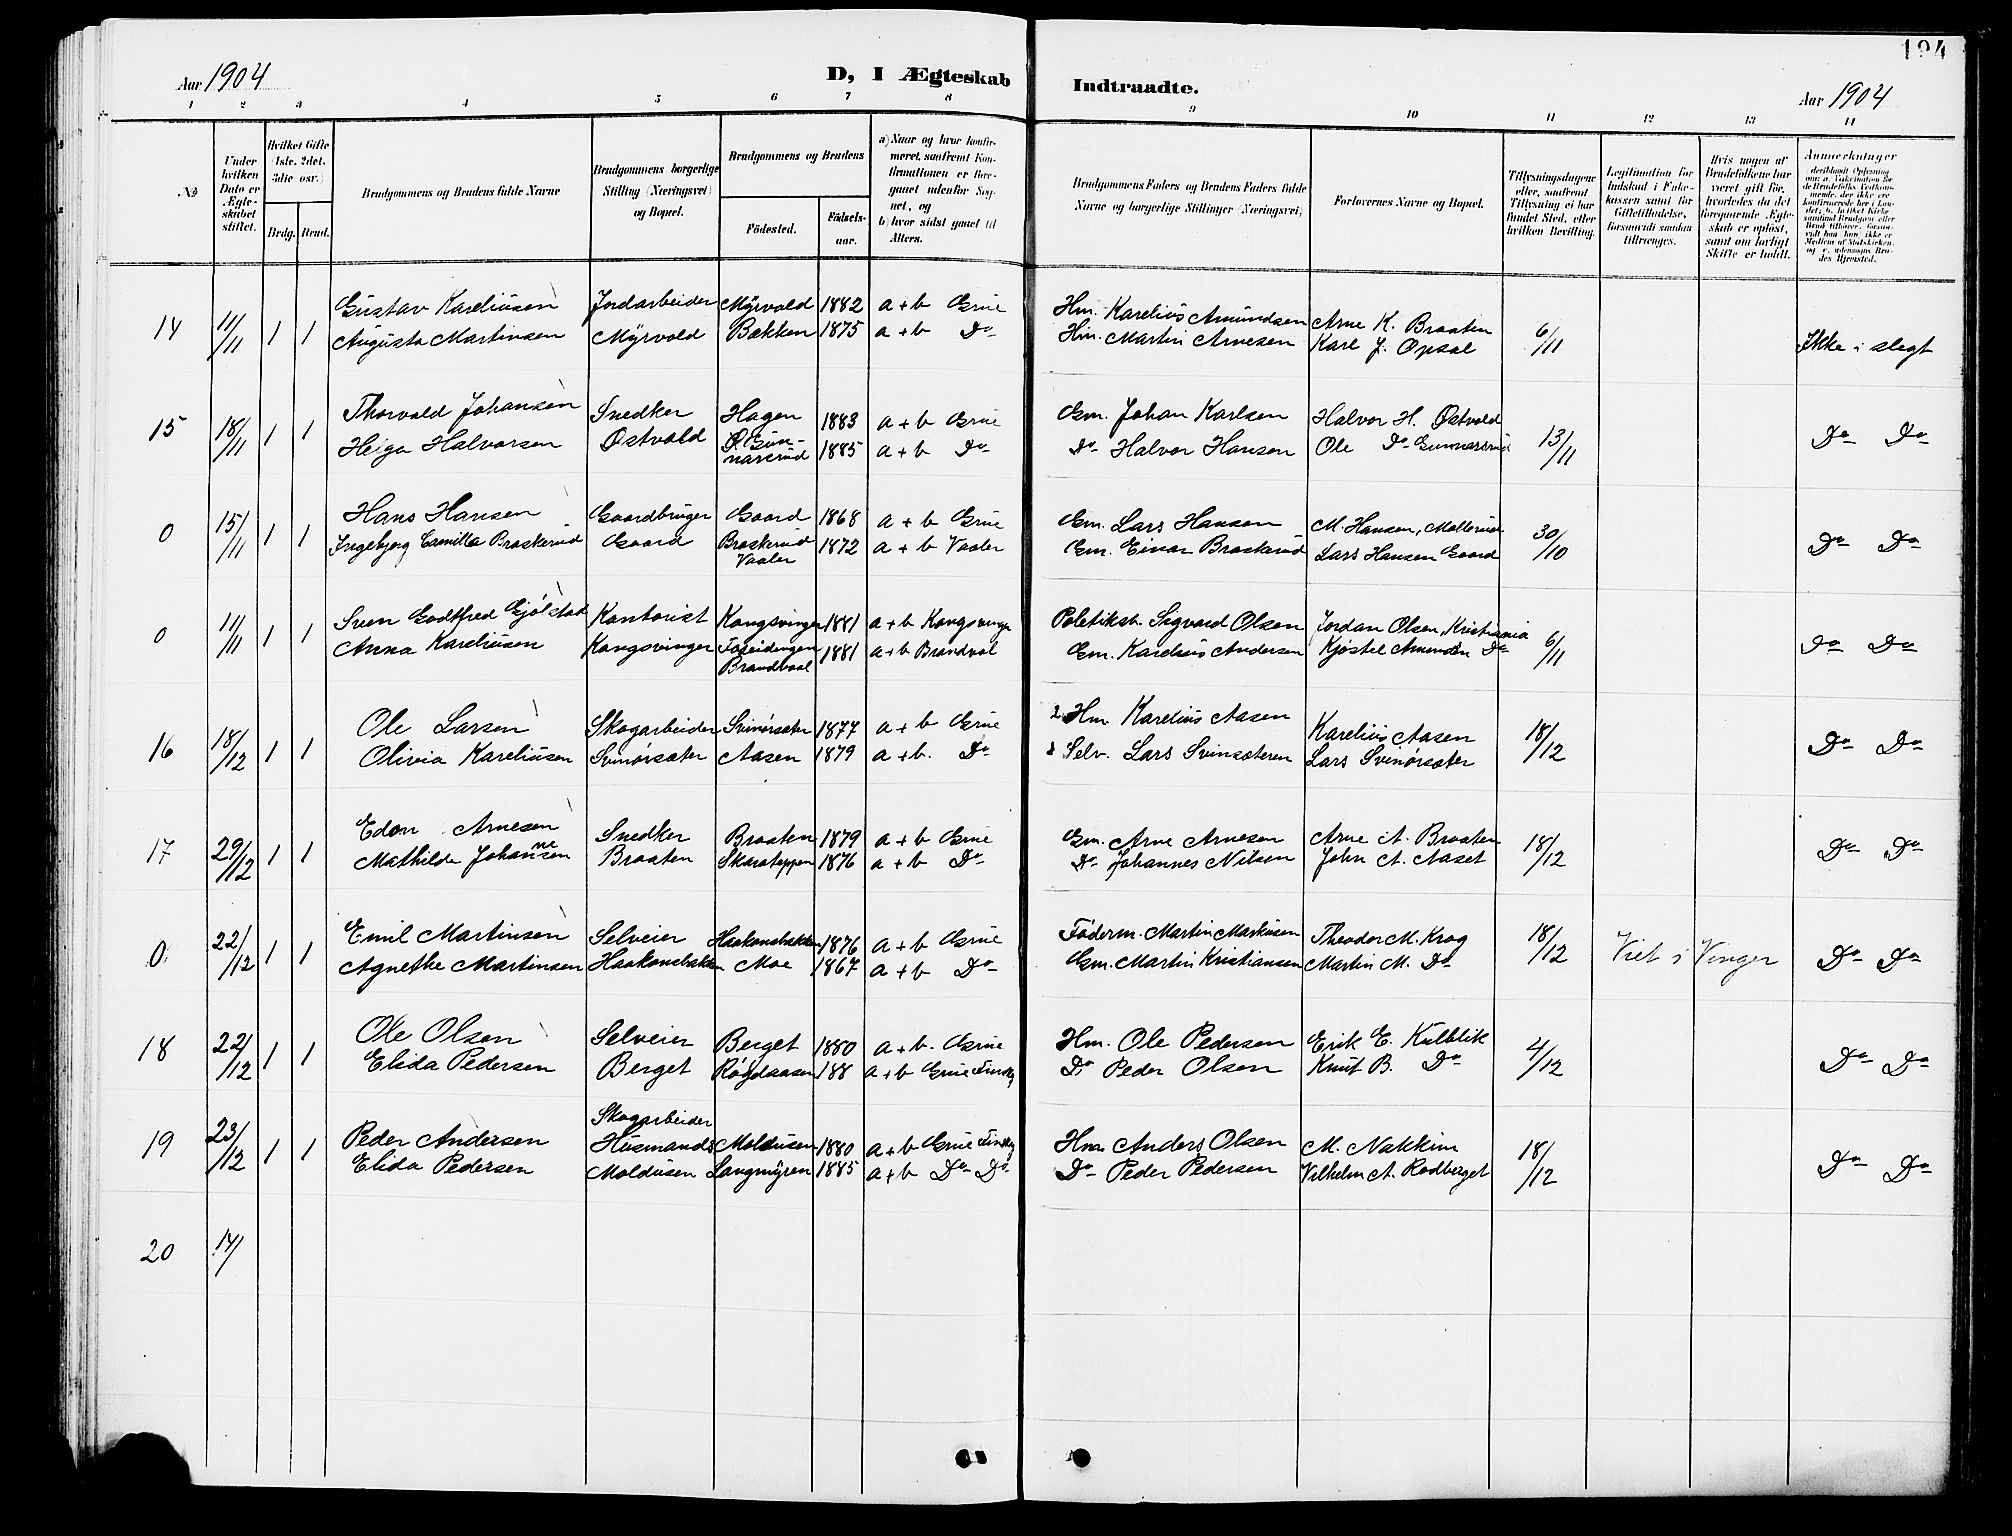 194
Aar 1904
D, I Ægteskab
Indtraadte.
Aar 1904
1 2 3 4 5 6 7 8 9 10 11 12 13 14
No
Under hvilken Dato er Ægteskabet stiftet.
Hvilket Gifte (1ste, 2det, 3die osv.)
Brdg. Brud.
Brudgommens og Brudens fulde Navne
Brudgommens borgerlige Stilling (Næringsvei) og Bopæl.
Brudgommens og Brudens
Födested.
Födsels-aar.
a) Naar og hvor konfirmeret, saafremt Konfirmationen er foregaaet udenfor Sognet, og
b) hvor sidst gaaet til Alters.
Brudgommens Faders og Brudens Faders fulde Navne og borgerlige Stillinger (Næringsvei)
Forlovernes Navne og Bopæl.
Tillysningsdagene eller, saafremt Tillysning ei har fundet Sted, efter hvilken Bevilling.
Legitimation for Indskud i Enkekassen samt for Giftetilladelse, forsaavidt saadan tiltrænges.
Hvis nogen af Brudefolkene har været gift før, hvorledes da det foregaaende Ægteskab er opløst, samt om lovligt Skifte er holdt.
Anmerkninger
14 11/11 1 1 Gustav Kareliusen Jordarbeider Myrvold 1882 a + b Grue Hm. Karelius Amundsen Arne K. Braaten 6/11 Ikke i slegt
Augusta Martinsen Myrvold Bakken 1875 a + b Do Hm. Martin Arnesen Karl J. Opsal
15 18/11 1 1 Thorvald Johansen Snedker Hagen 1883 a + b Grue Gm. Johan Karlsen Halvor H. Østvold 13/11 Do Do
Helga Halvorsen Østvold Ø. Gunnarsrud 1885 a + b Do Do Halvor Hansen Ole Do Gunnarsrud
0 15/11 1 1 Hans Hansen Gaardbruger Gaard 1868 a + b Grue Gm. Lars Hansen M. Hansen, Mellerud 30/10 Do Do
Ingebjørg Camilla Braskerud Gaard Braskerud Vaaler 1872 a + b Vaaler Gm. Einar Braskerud Lars Hansen Gaard
0 11/11 1 1 Sven Godtfred Gjølstad Kontorist Kongsvinger 1881 a + b Kongsvinger Politikst. Sigvard Olsen Jordan Olsen, Kristiania 6/11 Do Do
Anna Kareliusen Kongsvinger Brandvaal 1881 a + b Brandval Gm. Karelius Andersen Kjøstel Amundsen Do
16 18/12 1 1 Ole Larsen Skogarbeider Svinørsæter 1877 a + b Grue 2 Hm Karelius Aasen Karelius Aasen 18/12 Do Do
Olivia Kareliusen Svinørsæter Aasen 1879 a + b. Do 1 Selv. Lars Svinsæteren Lars Svinørsæter
17 29/12 1 1 Edon Arnesen Snedker Braaten 1879 a + b Grue Gm. Arne Arnesen Arne A. Braaten 18/12 Do Do
Mathilde Johannesen Braaten Skarateppen 1876 a + b Do Do Johannes Nilsen John A. Aaset
0 22/12 1 1 Emil Martinsen Selveier Haakonsbakken 1876 a + b Grue Föderm. Martin Markusen Theodor M. Krog 18/12 Viet i Vinger Do Do
Agnethe Martinsen Haakonsbakken Moe 1867 a + b Do Gm. Martin Kristiansen Martin M. Do
18 22/12 1 1 Ole Olsen Selveier Berget 1880 a + b. Grue Hm. Ole Pedersen Erik E. Kulblik 4/12 Do Do
Elida Pedersen Berget Røgdaasen 188 a + b Grue Finskg Do Peder Olsen Knut B. Do
19 23/12 1 1 Peder Andersen Skogarbeider Husmands Moldusen 1880 a + b Grue Finskg Hm Anders Olsen M. Nakkim 18/12 Do Do
Elida Pedersen Moldusen Langmyren 1885 a + b Do Do Do Peder Pedersen Vilhelm A. Rodberget
20 14/